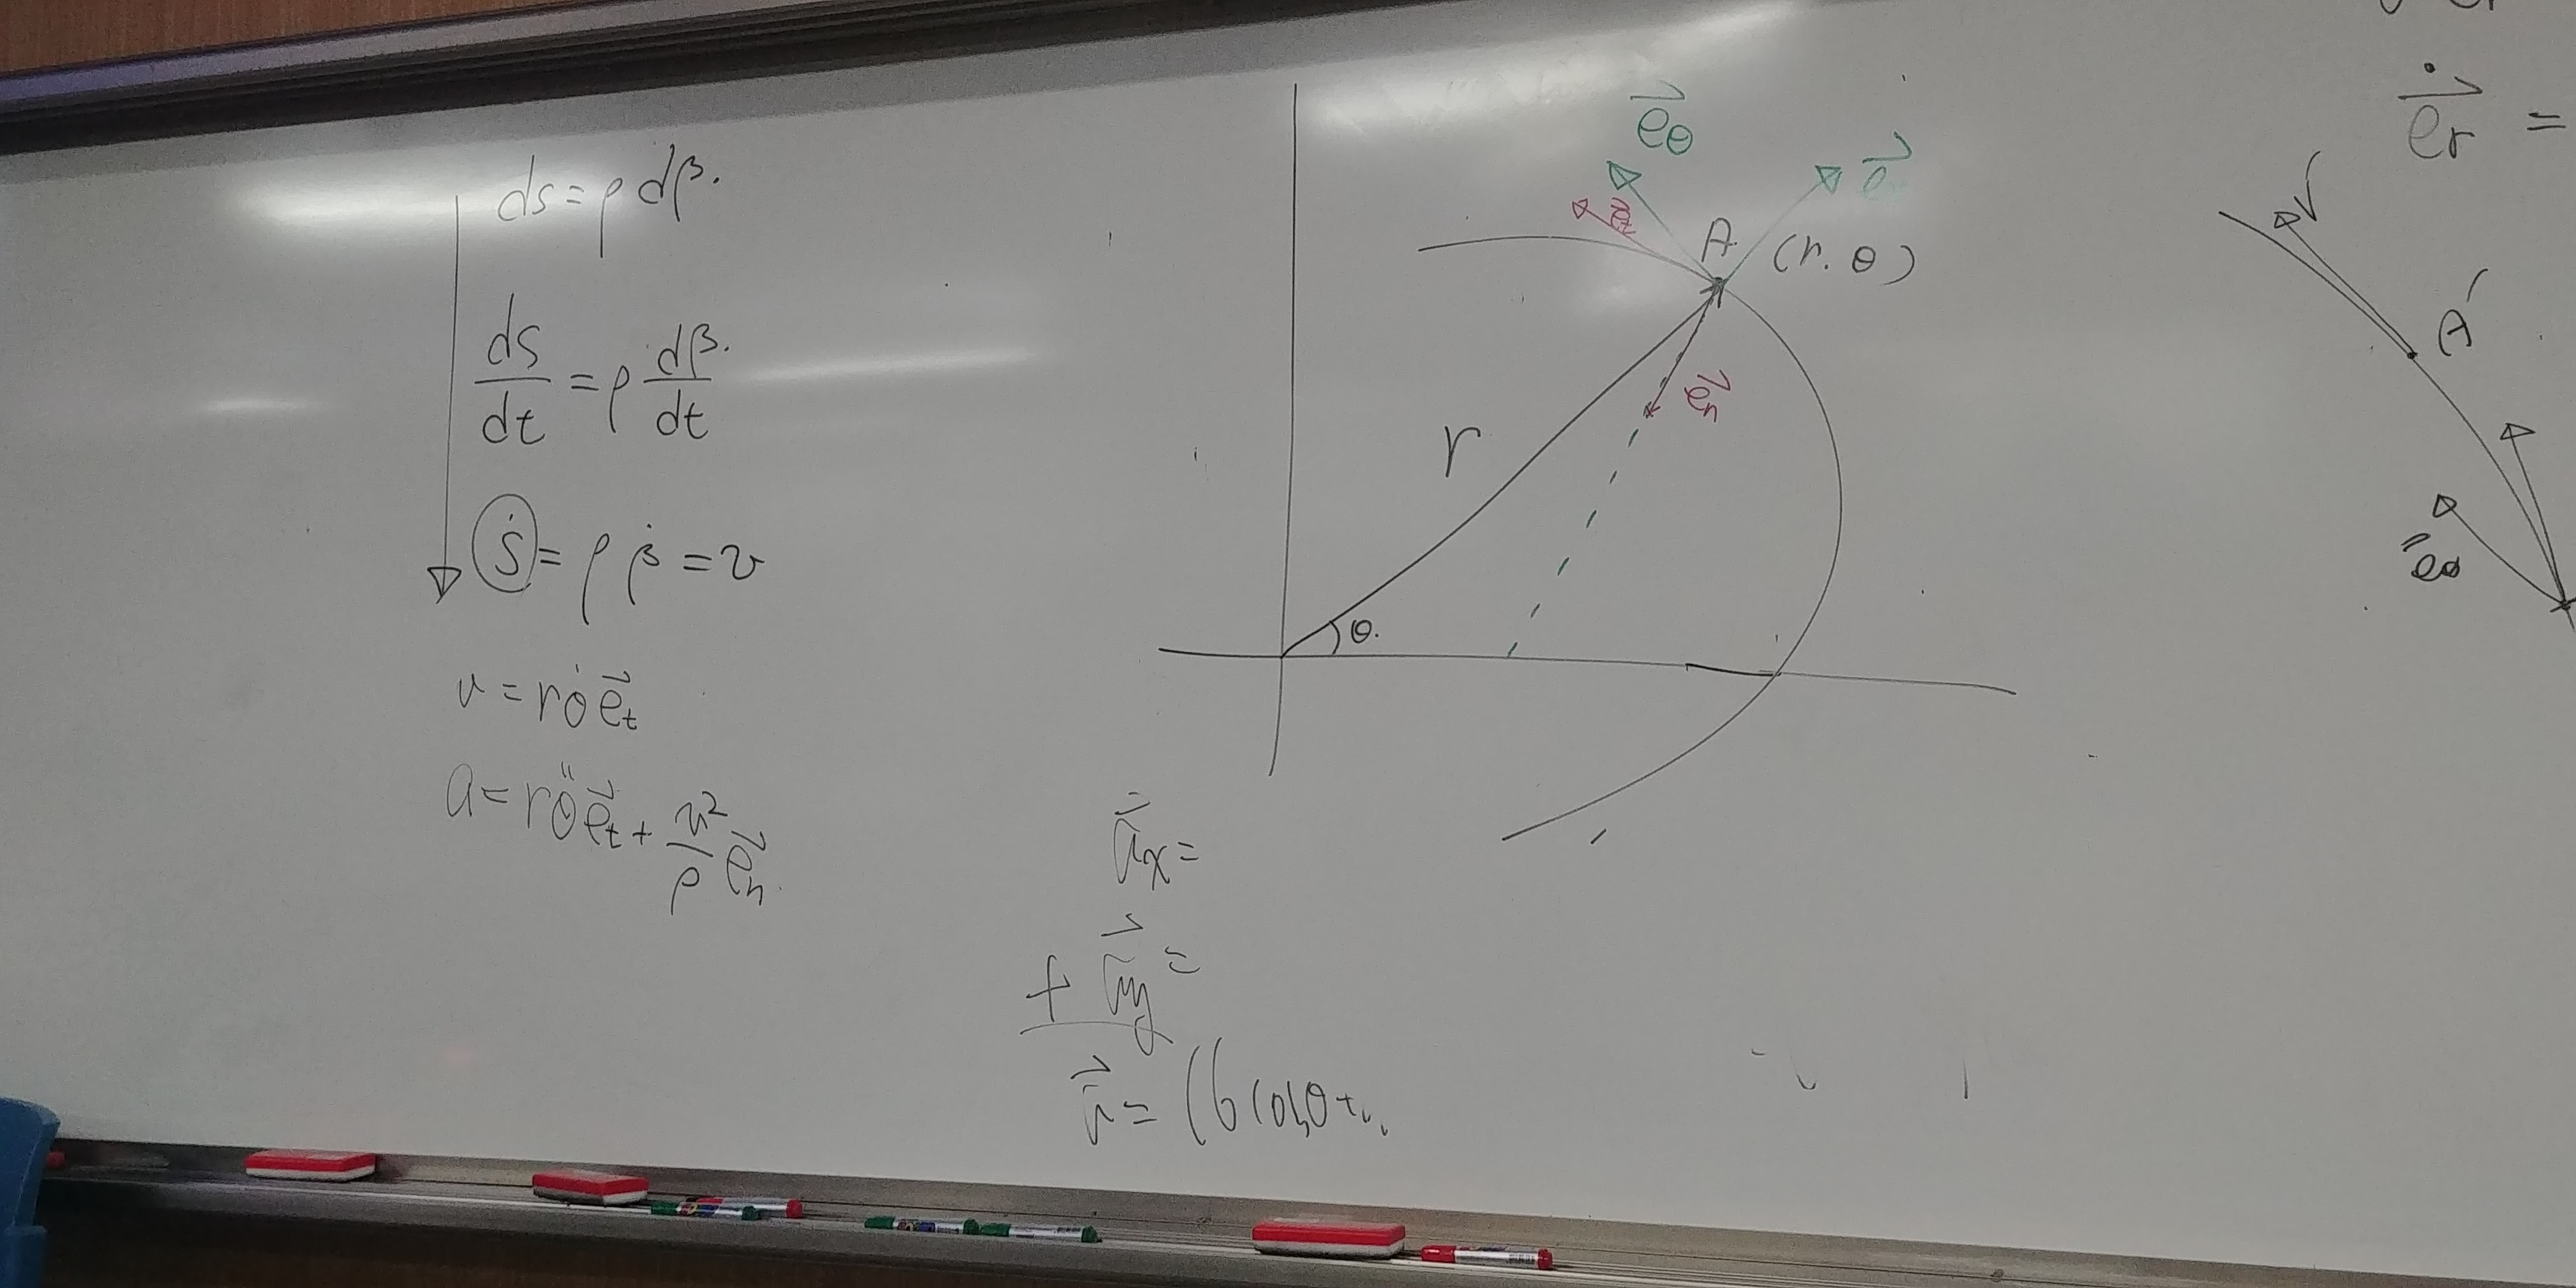 ds = ρ dβ.
ds/dt = ρ dβ/dt
ṡ = ρ β̇ = v
v = r θ̇ e⃗t
a = r θ̈ e⃗t + v²/ρ e⃗n.
e⃗θ
e⃗t
A (r. θ)
e⃗n
r
θ.
a⃗x =
+ a⃗y =
a⃗ = (6 cosθ +
e⃗̇r =
A'
e⃗θ